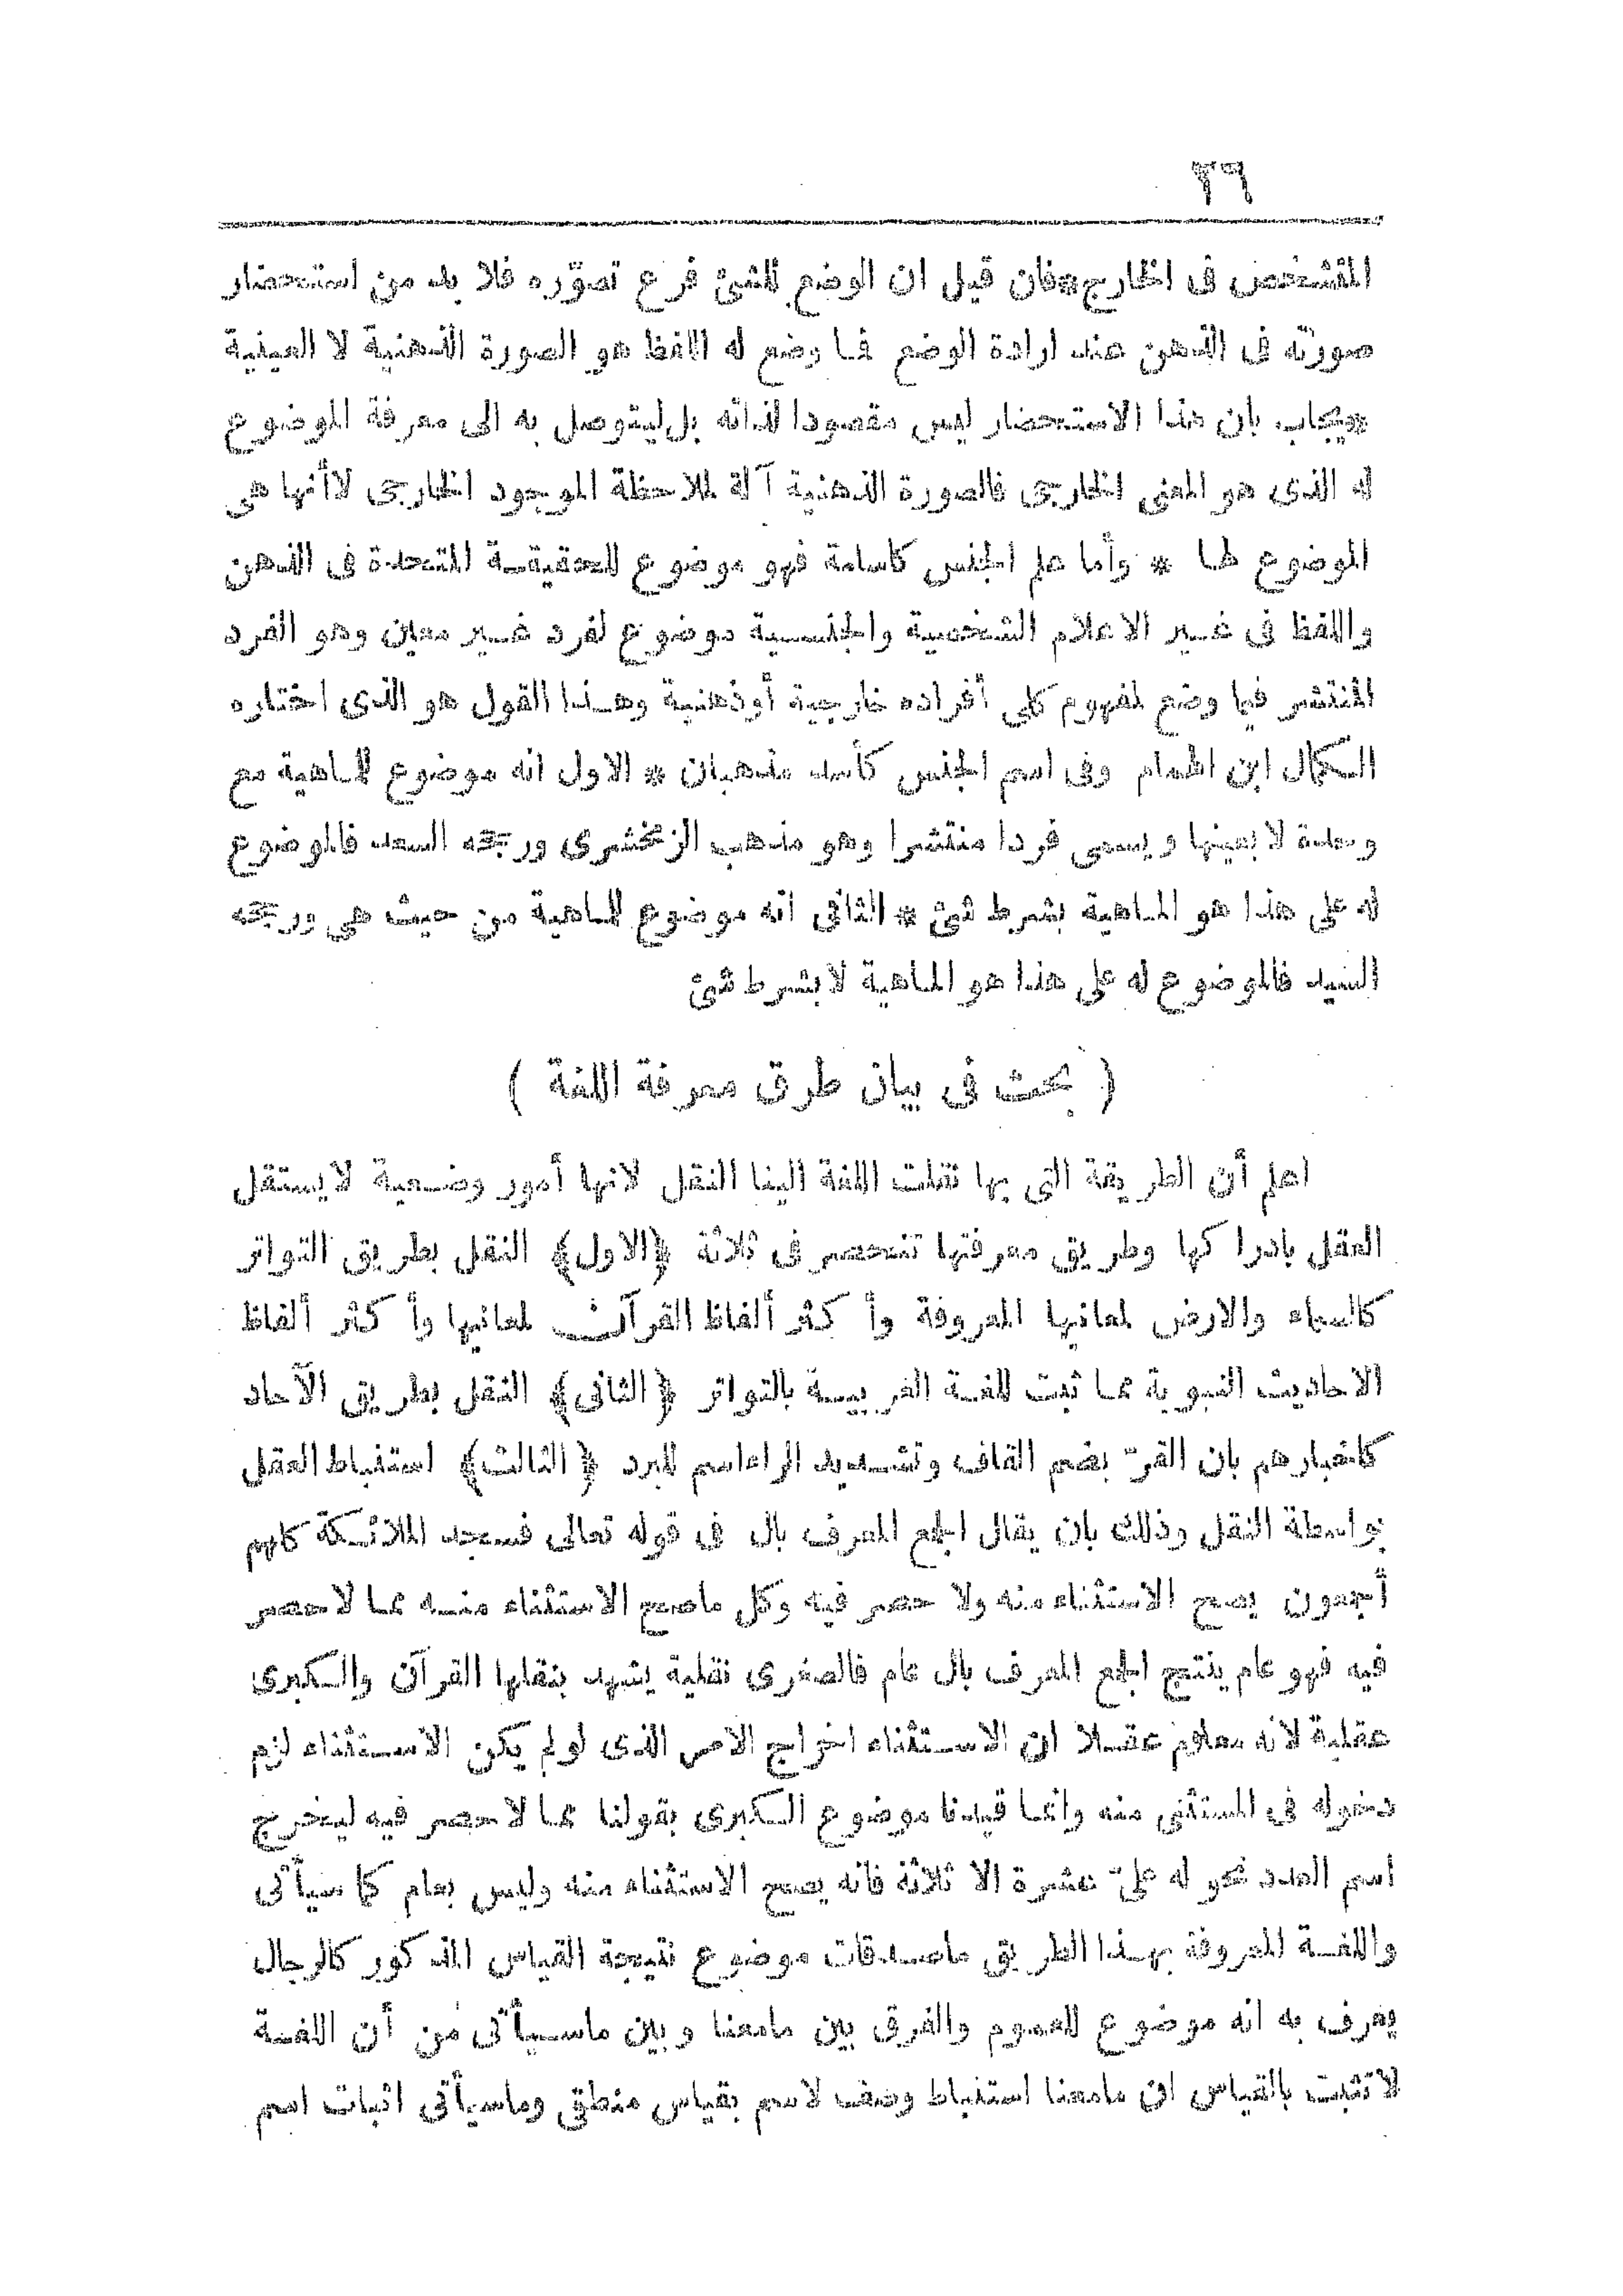 ٣٦
المتشخص فى الخارج*فان قيل ان الوضع للشئ فرع تصوّره فلا بد من استحضار
صورته فى الذهن عند ارادة الوضع فما وضع له اللفظ هو الصورة الذهنية لا العينية
*يجاب بان هذا الاستحضار ليس مقصودا لذاته بل ليتوصل به الى معرفة الموضوع
له الذى هو المعنى الخارجى فالصورة الذهنية آلة لملاحظة الموجود الخارجى لاأنها هى
الموضوع لها * وأما علم الجنس كاسامة فهو موضوع للحقيقة المتحدة فى الذهن
واللفظ فى غير الاعلام الشخصية والجنسية موضوع لفرد غير معين وهو الفرد
المنتشر فيما وضع لمفهوم كلى أفراده خارجية أوذهنية وهذا القول هو الذى اختاره
الكمال ابن الهمام وفى اسم الجنس كأسد مذهبان * الاول انه موضوع للماهية مع
وحدة لا بعينها ويسمى فردا منتشرا وهو مذهب الزمخشرى ورجحه السعد فالموضوع
له على هذا هو الماهية بشرط شئ * الثانى انه موضوع للماهية من حيث هى ورجحه
السيد فالموضوع له على هذا هو الماهية لا بشرط شئ
( بحث فى بيان طرق معرفة اللغة )
اعلم أن الطريقة التى بها نقلت اللغة الينا النقل لانها أمور وضعية لا يستقل
العقل بادراكها وطريق معرفتها تنحصر فى ثلاثة ﴿الاول﴾ النقل بطريق التواتر
كالسماء والارض لمعانيها المعروفة وأكثر ألفاظ القرآن لمعانيها وأكثر ألفاظ
الاحاديث النبوية مما ثبت للغة العربية بالتواتر ﴿الثانى﴾ النقل بطريق الآحاد
كاخبارهم بان القرّ بضم القاف وتشديد الراء اسم للبرد ﴿الثالث﴾ استنباط العقل
بواسطة النقل وذلك بان يقال الجمع المعرف بال فى قوله تعالى فسجد الملائكة كلهم
أجمعون يصح الاستثناء منه ولا حصر فيه وكل ماصح الاستثناء منه مما لا حصر
فيه فهو عام ينتج الجمع المعرف بال عام فالصغرى نقلية يشهد بنقلها القرآن والكبرى
عقلية لانه معلوم عقلا ان الاستثناء اخراج الامر الذى لولم يكن الاستثناء لزم
دخوله فى المستثنى منه وانما قيدنا موضوع الكبرى بقولنا مما لا حصر فيه ليخرج
اسم العدد نحو له علىّ عشرة الا ثلاثة فانه يصح الاستثناء منه وليس بعام كما سيأتى
واللغة المعروفة بهذا الطريق ماصدقات موضوع نتيجة القياس المذكور كالرجال
يعرف به انه موضوع للعموم والفرق بين مامعنا وبين ماسيأتى من أن اللغة
لا تثبت بالقياس ان مامعنا استنباط وصف لاسم بقياس منطقى وماسيأتى اثبات اسم